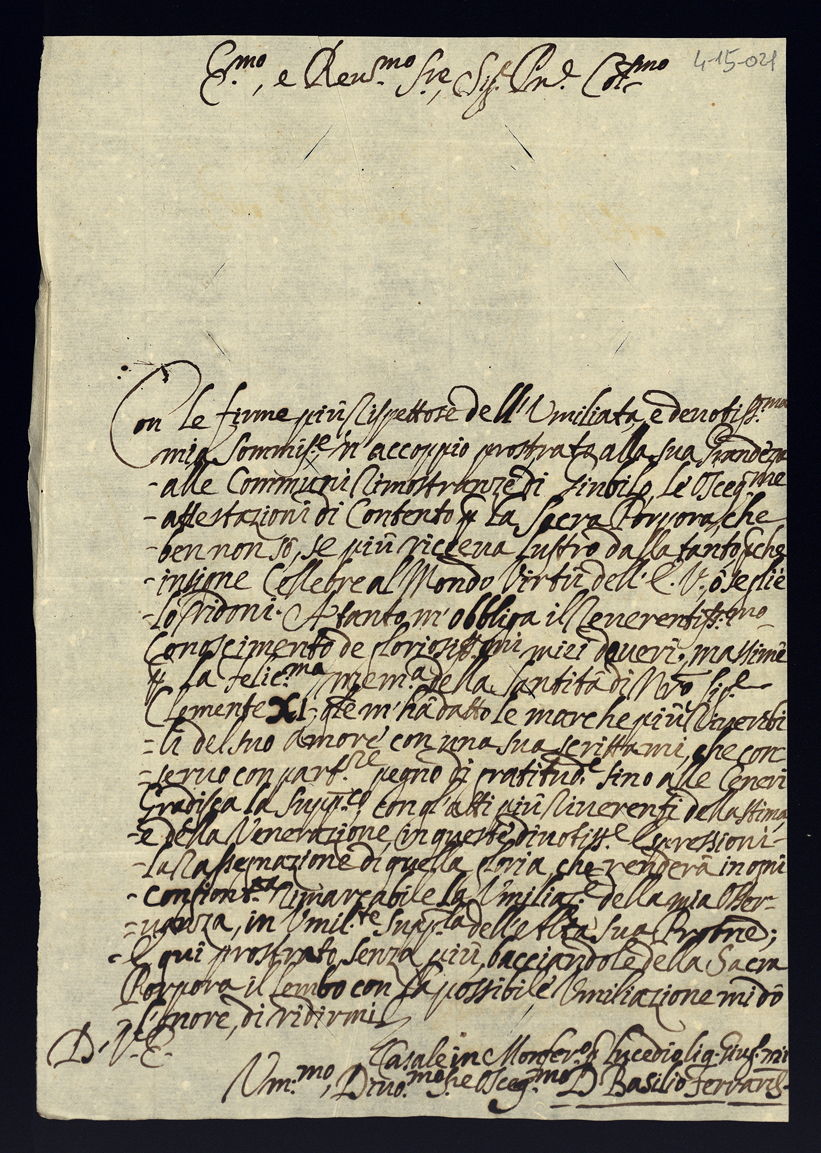 4-15-021
E.mo, e Reu.mo Sre, Sig.e Pn.e Col.mo
Con le firme più rispettose dell'Umiliata, e denotiss.ma
mia Sommis.e m'accoppio prostrato alla sua Grandezza
- alle Communi rimostranze di Giubilo, le Osceq.me
- attestazioni di Contento p la Sacra Porpora, che
- ben non sò, se più riceua lustro dalla tanto, che
- insigne Cellebre al Mondo Virtù dell'E.V., ò se glie
- lo ridoni. A tanto m'obbliga il reuerentiss.mo
Conoscimento de gloriosiss.mi miei doueri, massime
p la felic.ma mem.a della Santità di Nro Sig.e
Clemente XI. che m'hà datto le marche più riueribi
= li del suo Amore con una sua scrittami, che con
= seruo con part.re pegno di gratitud.e sino alle Ceneri
Gradisca la supp.co con gl'atti più riuerenti della stima,
= e della Venerazione, in queste diuotiss.e Espressioni
- la rassegnazione di quella gloria, che renderà in ogni
- rimarcabile la Umiliaz.e della mia Osser-
= uanza, in Umil.te della Alta sua Protne;
- E qui prostrato, senza più, bacciandole della Sacra
Porpora il lembo con la possibile Umiliazione mi dò
l'onore, di ridirmi
D. V. E.
Casale in Monfer.o p Lucedio li 9. Giug.
Um.mo, Diuo.mo, Sre Osceq.mo D Basilio Ferraris